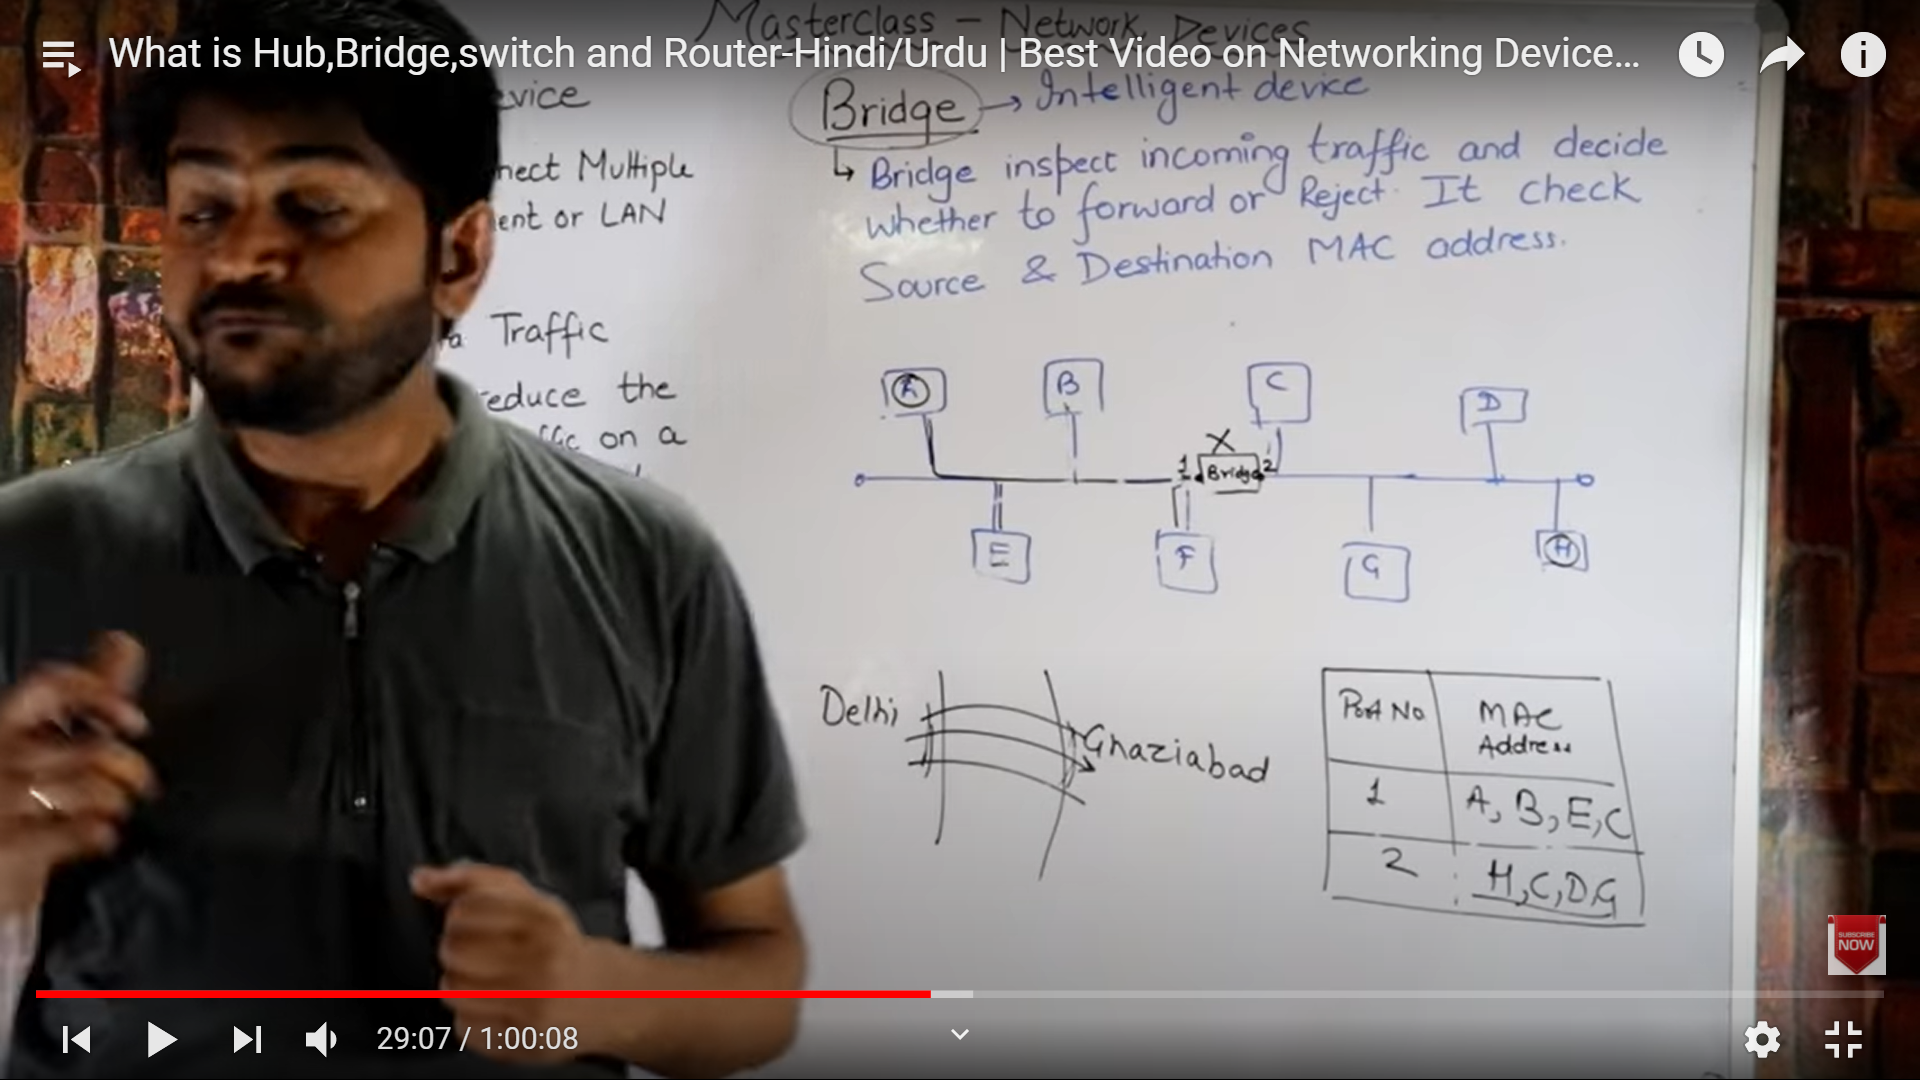 Masterclass - Network Devices
What is Hub,Bridge,switch and Router-Hindi/Urdu | Best Video on Networking Device...
vice
nect Multiple
ent or LAN
Traffic
educe the
on a
Bridge → Intelligent device
↳ Bridge inspect incoming traffic and decide
whether to forward or Reject. It check
Source & Destination MAC address.
A B C D
X
1 Bridge 2
E F G H
Delhi
Ghaziabad
Port No MAC Address
1 A, B, E, C
2 H, C, D, G
SUBSCRIBE
NOW
29:07 / 1:00:08